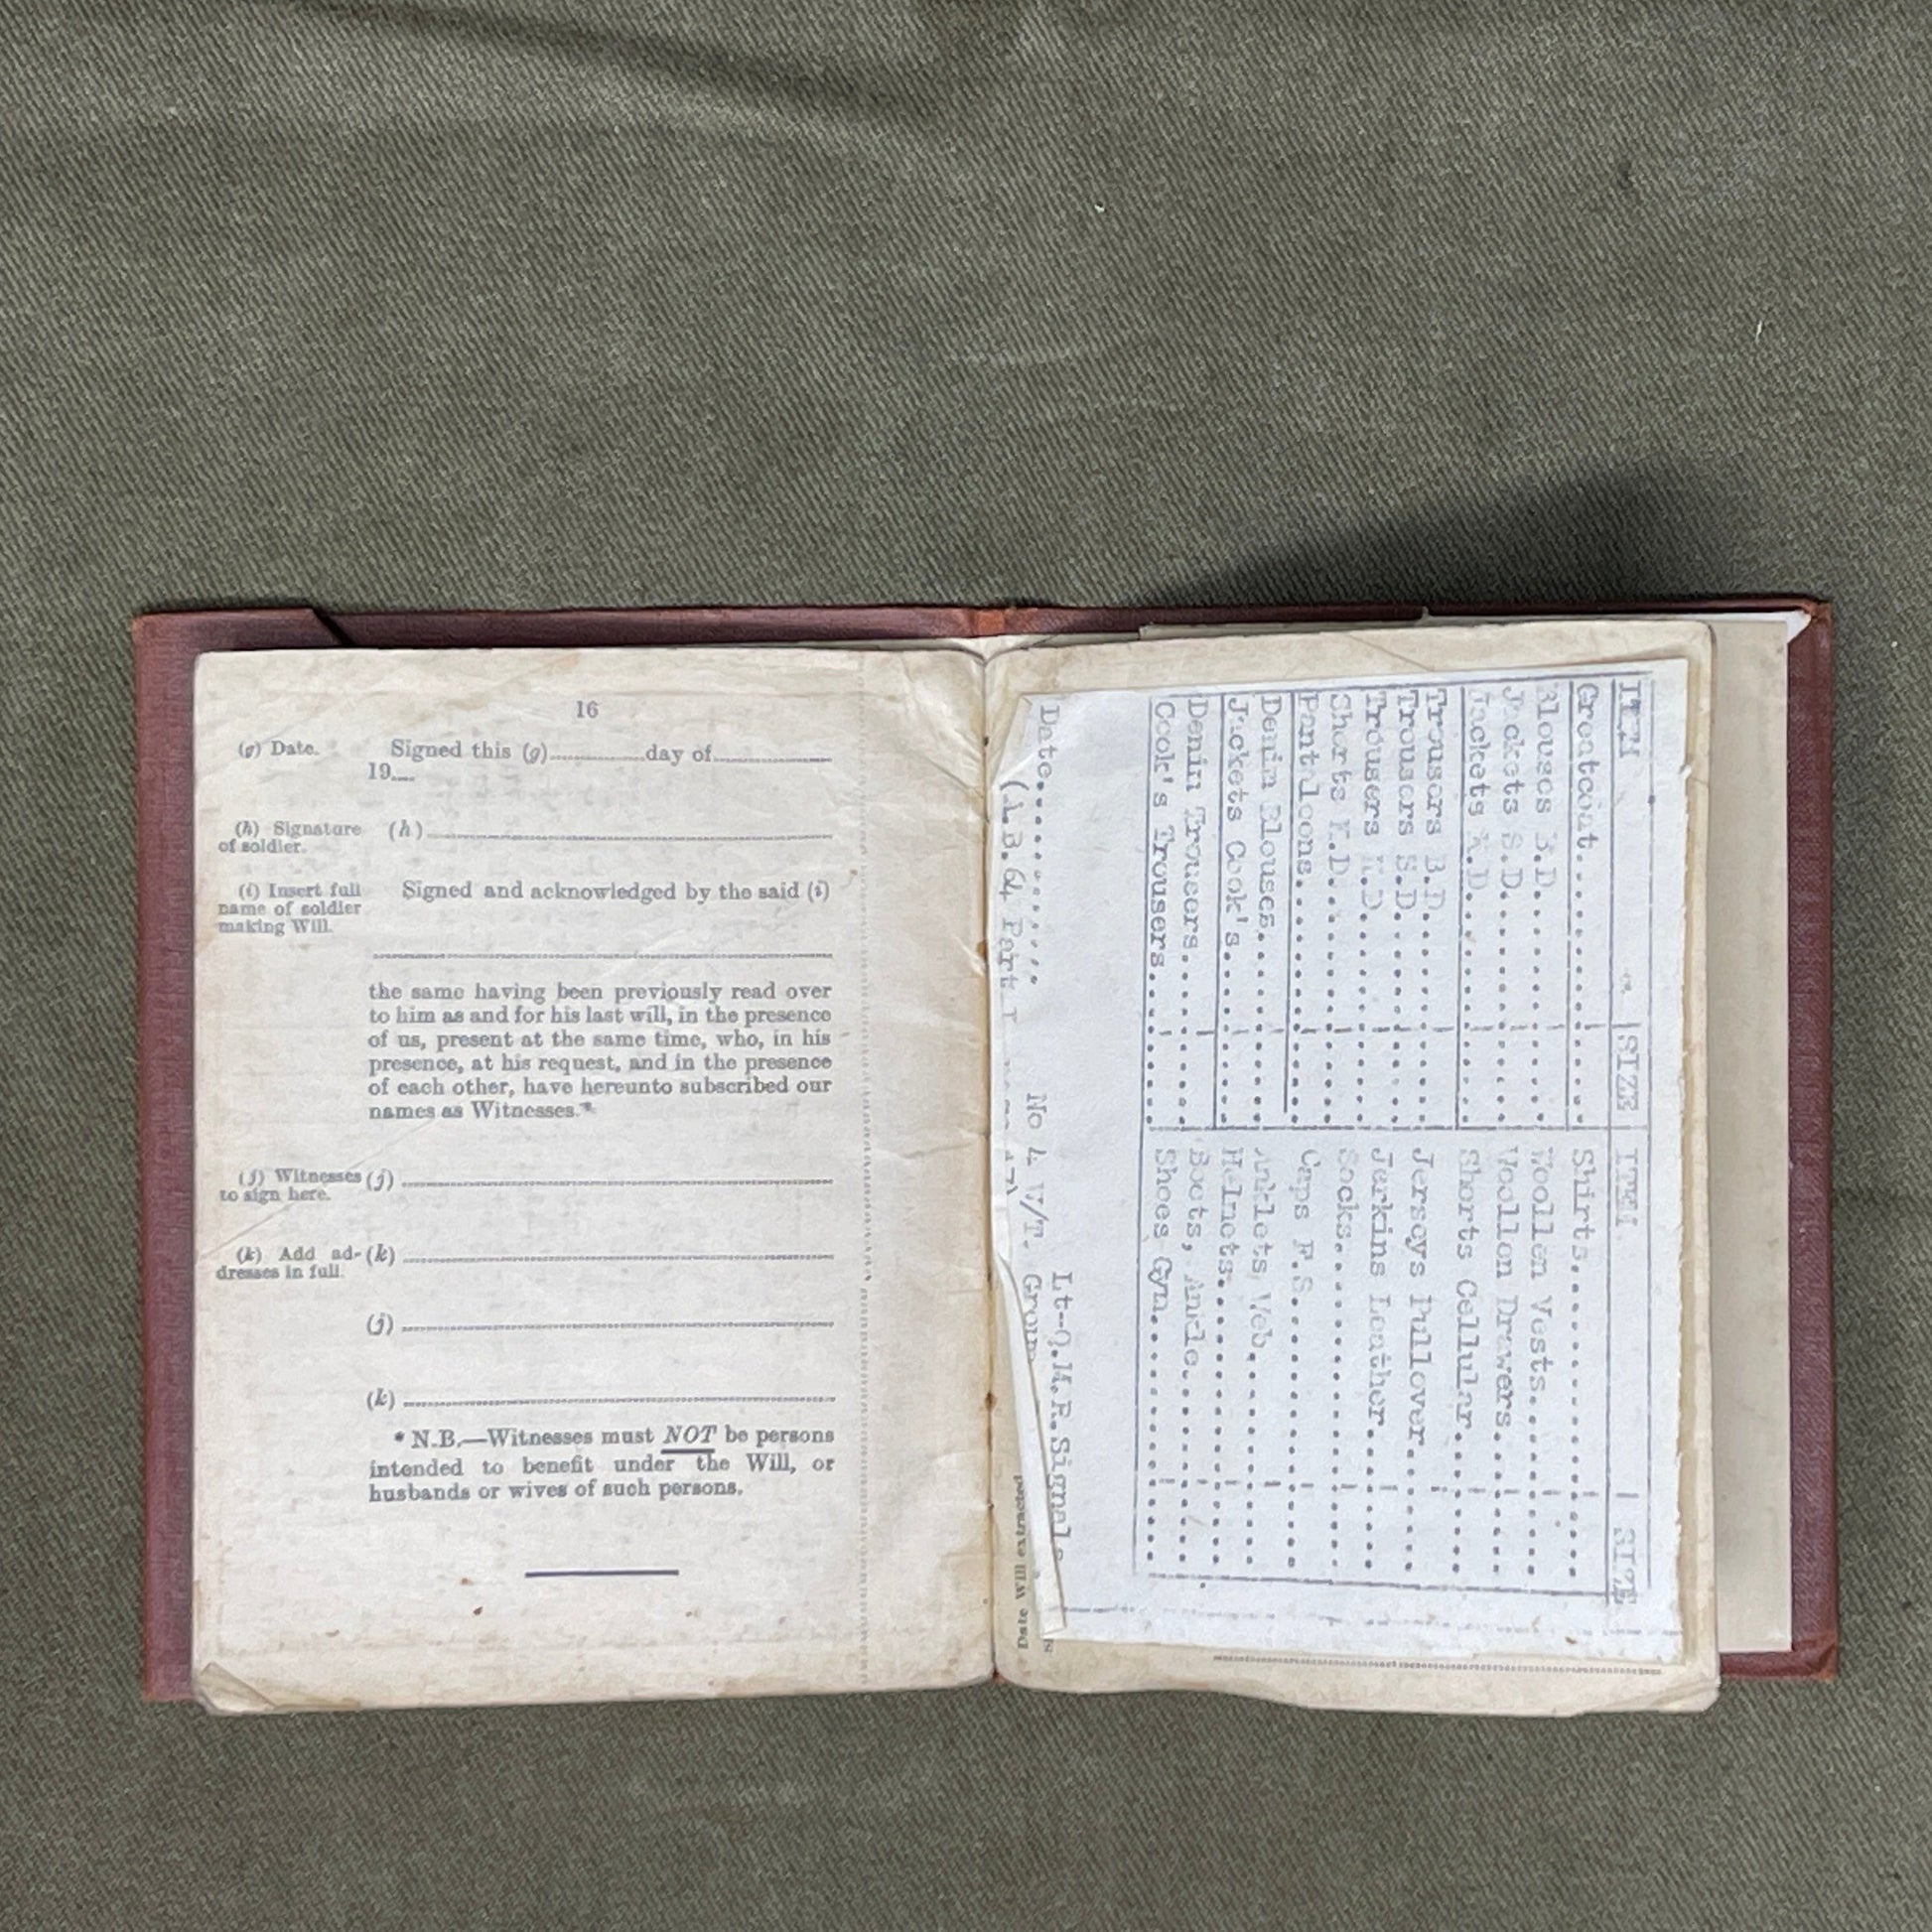 16
(g) Date. Signed this (g)..............day of..................
19....
(h) Signature of soldier. (h)
(i) Insert full name of soldier making Will. Signed and acknowledged by the said (i)
the same having been previously read over
to him as and for his last will, in the presence
of us, present at the same time, who, in his
presence, at his request, and in the presence
of each other, have hereunto subscribed our
names as Witnesses.*
(j) Witnesses to sign here. (j)
(k) Add addresses in full. (k)
(j)
(k)
* N.B.—Witnesses must NOT be persons
intended to benefit under the Will, or
husbands or wives of such persons.
ITEM SIZE ITEM SIZE
Greatcoat.......... Shirts..........
Blouses B.D.......... Woollen Vests..........
Jackets S.D.......... Woollen Drawers..........
Jackets K.D.......... Shorts Cellular..........
Trousers B.D.......... Jerseys Pullover..........
Trousers S.D.......... Jerkins Leather..........
Trousers K.D.......... Socks..........
Shorts K.D.......... Caps F.S..........
Pantaloons.......... Anklets, Web..........
Denim Blouses.......... Helmets..........
Jackets Cook's.......... Boots, Ankle..........
Denim Trousers.......... Shoes Gym..........
Cook's Trousers..........
Lt-Q.M.R.Signals
Date.............. No 4 W/T. Group
(A.B.64 Part I
Date Will extracted